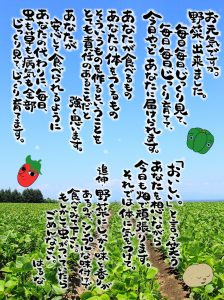 お元気ですか。
野菜、出来ました。
毎日毎日じっくり見て、
毎日毎日じっくり育てて、
今日やっとあなたに届けられます。
あなたが食べるもの
あなたの体をつくるもの
そういうものを作るということを
とても責任のあることだと
強く思います。
あなたが
安心して食べられるように
あたしたちは毎日、
虫も草も病気も全部
じっくり見て、じっくり育ててます。
「おいしい。」と言って笑う
あなたを想像しながら
今日も畑で頑張ります。
それでは体に気をつけて。
追伸 野菜にはしっかり味と香が
あるのでシンプルな味付で
食べてみて下さい。
もしも虫がついてたら
ごめんなさい。
はるな